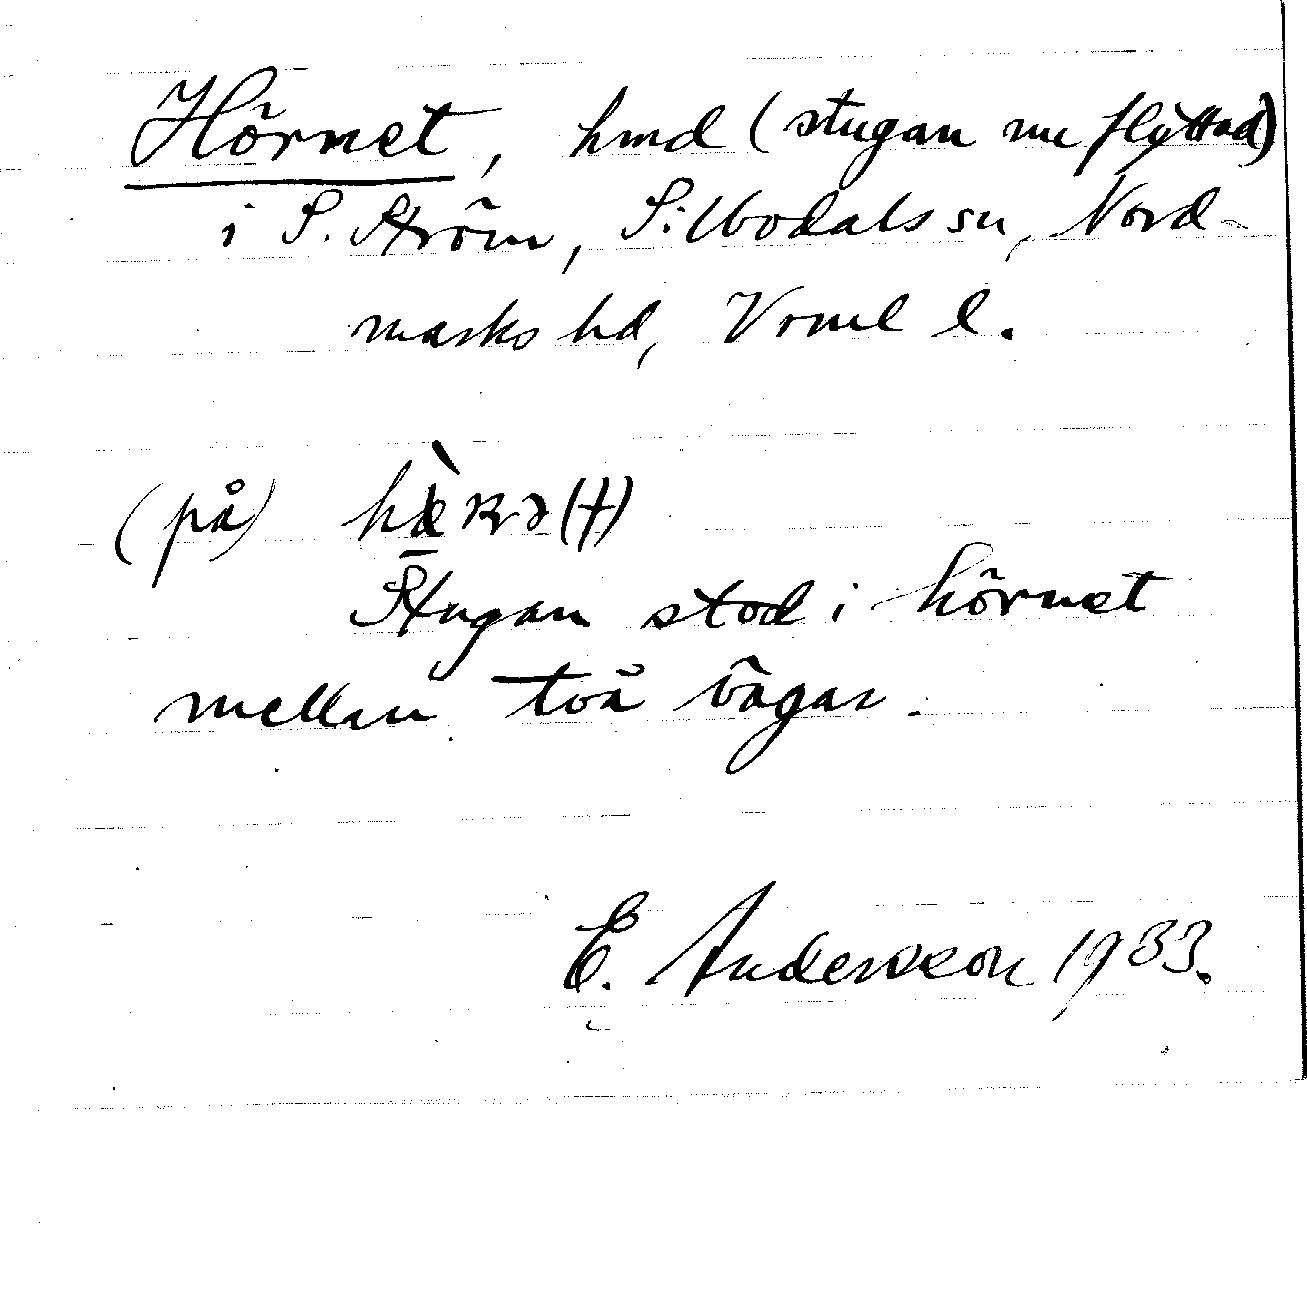 Hörnet, hmd (stugan nu flyttad)
i S. Ström, Silbodals sn, Nord-
marks hd, Vrml l.
(på)
Stugan stod i hörnet
mellan två vägar.
E. Andersson 1933.